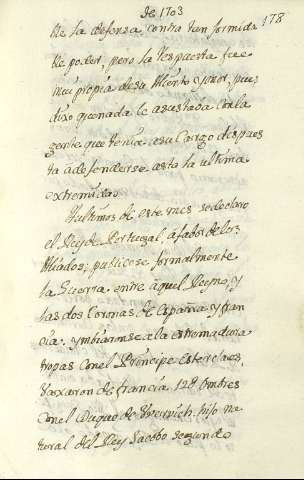 de 1703
178
ble la defensa, contra tan formida
ble poder, pero la respuesta fue
mui propia de su Aliento y onor, pues
dixo que nada le asustaba con la
gente que tenia a su Cargo dispues
ta a defenderse asta la ultima
extremidad.
Vltimos de este mes se declaro
el Rey de Portugal, a fabor de los
Aliados, publicose formalmente
la Guerra entre aquel Reyno, y
las dos Coronas de España y fran
cia. ymbiaronse a la estremadura
tropas con el Principe Esterclaes,
vaxaron de francia 12@ ombres
con el Duque de Vervich, hijo na
tural del Rey Jacobo segundo